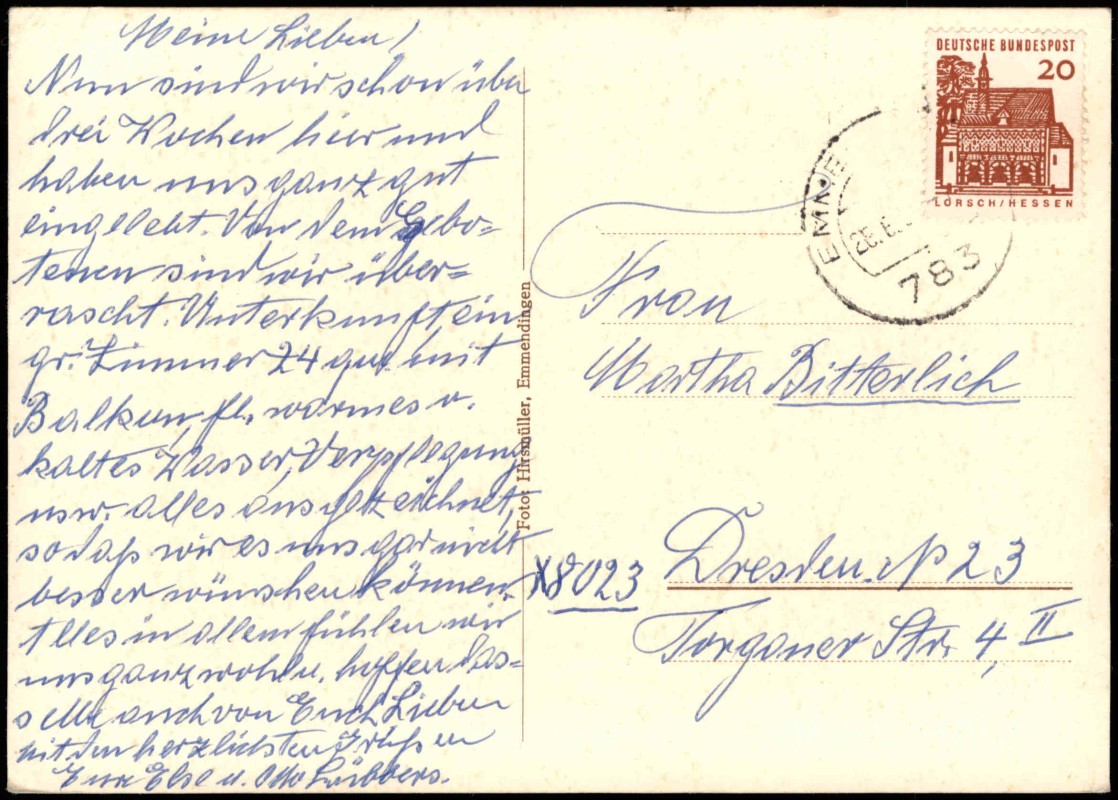 Meine Lieben!
Nun sind wir schon über
drei Wochen hier und
haben uns ganz gut
eingelebt. Von dem Gebo=
tenen sind wir über=
rascht. Unterkunft ein
gr. Zimmer 24 qm mit
Balkon, fl. warmes u.
kaltes Wasser, Verpflegung
usw. alles ausgezeichnet,
sodaß wir es uns gar nicht
besser wünschen können.
Alles in allem fühlen wir
uns ganz wohl u. hoffen das=
selbe auch von Euch Lieben
mit den herzlichsten Grüßen
Eure Else u. Otto Lübbers.
Foto: Hirsmüller, Emmendingen
DEUTSCHE BUNDESPOST
20
LORSCH/HESSEN
EMME
28.6.
783
Frau
Martha Bitterlich
X8023
Dresden. N 23
Torgauer Str. 4, II